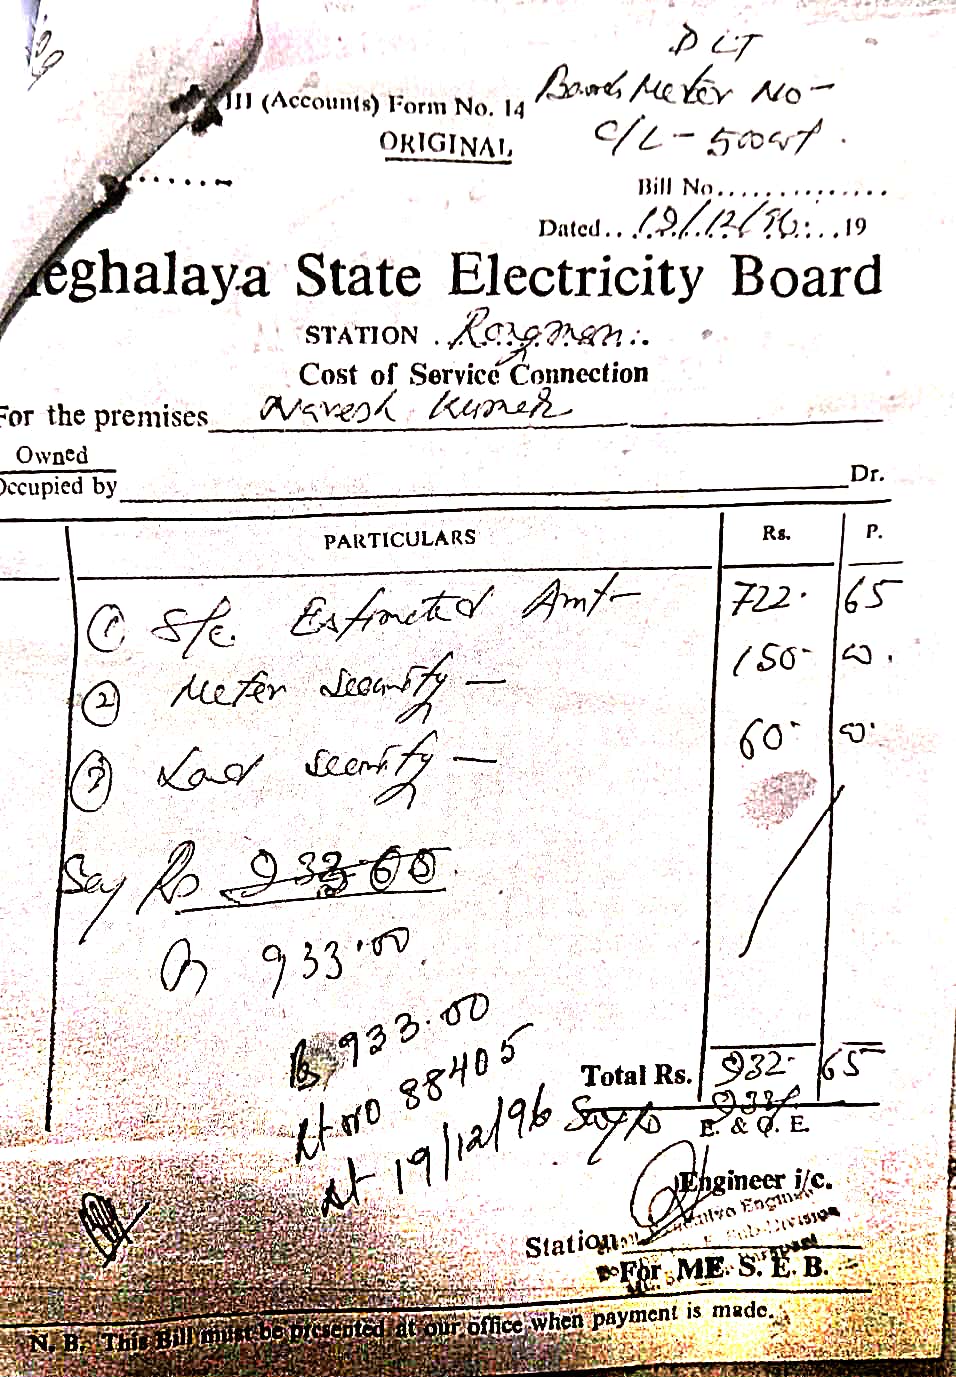 DLT
Board Meter No-
C/L - 500wt.
III (Accounts) Form No. 14
ORIGINAL
Bill No...............
Dated...19/12/96...19
eghalaya State Electricity Board
STATION
Cost of Service Connection
For the premises Naresh Kumar
Owned
Occupied by Dr.
PARTICULARS Rs. P.
① S/c. Estimated Amt- 722. 65
② Meter security - 150- 00.
③ Load security - 60- 00.
Say Rs 933.00
Rs 933.00
Rs 933.00
Rt no 88405
dt 19/12/96
Total Rs. 932. 65
Say Rs 933/-
E. & O. E.
Engineer i/c.
Station
For ME. S. E. B.
N. B. This Bill must be presented at our office when payment is made.